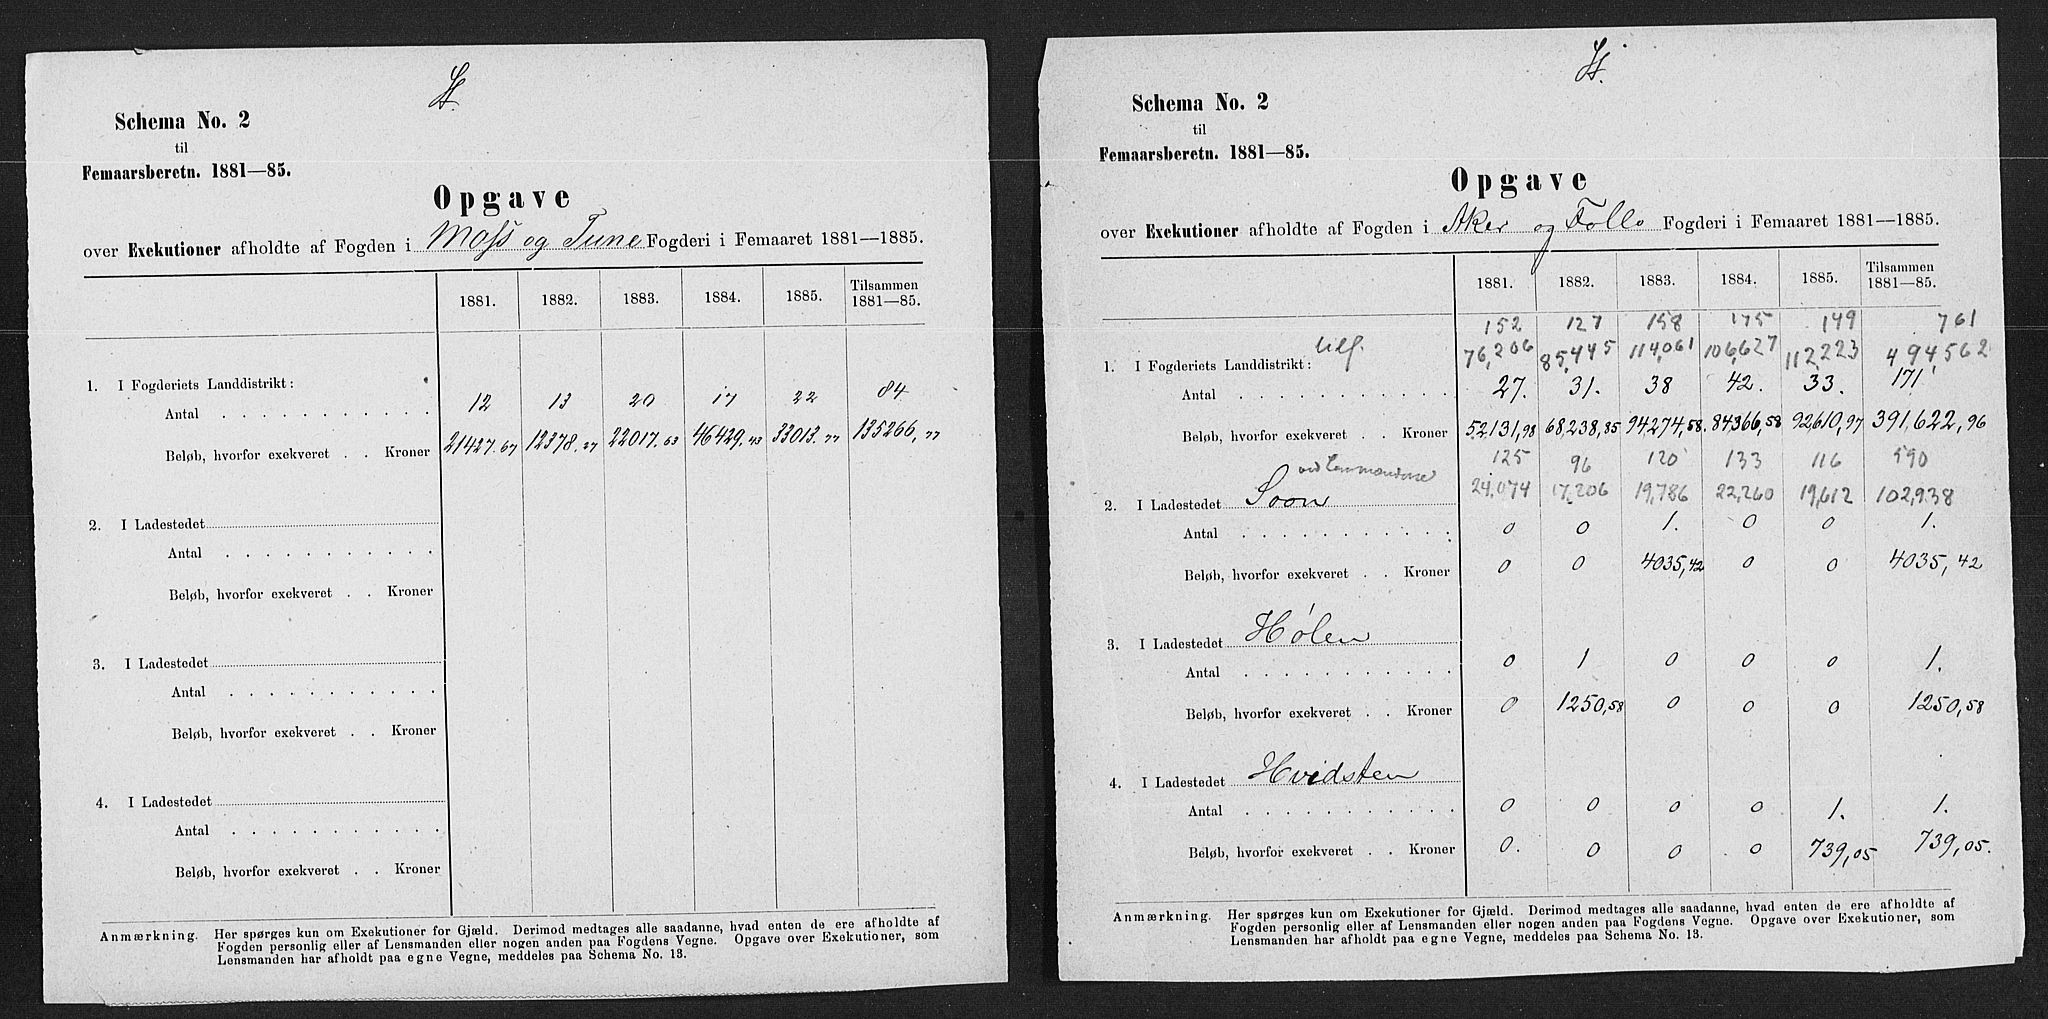 Schema No. 2
til
Femaarsberetn. 1881—85.
Opgave
over Exekutioner afholdte af Fogden i Moss og Tune Fogderi i Femaaret 1881—1885.
1881. 1882. 1883. 1884. 1885. Tilsammen 1881—85.
1. I Fogderiets Landdistrikt:
Antal . . . . . . . . . . . 12 13 20 17 22 84
Beløb, hvorfor exekveret . . Kroner 21427.67 12378.27 22017.63 46429.43 33013.77 135266,77
2. I Ladestedet
Antal . . . . . . . . . . .
Beløb, hvorfor exekveret . . Kroner
3. I Ladestedet
Antal . . . . . . . . . . .
Beløb, hvorfor exekveret . . Kroner
4. I Ladestedet
Antal . . . . . . . . . . .
Beløb, hvorfor exekveret . . Kroner
Anmærkning. Her spørges kun om Exekutioner for Gjæld. Derimod medtages alle saadanne, hvad enten de ere afholdte af
Fogden personlig eller af Lensmanden eller nogen anden paa Fogdens Vegne. Opgave over Exekutioner, som
Lensmanden har afholdt paa egne Vegne, meddeles paa Schema No. 13.
Schema No. 2
til
Femaarsberetn. 1881—85.
Opgave
over Exekutioner afholdte af Fogden i Aker og Follo Fogderi i Femaaret 1881—1885.
1881. 1882. 1883. 1884. 1885. Tilsammen 1881—85.
152 127 158 175 149 761
76,206 85,445 114,061 106,627 112,223 494,562
1. I Fogderiets Landdistrikt:
Antal . . . . . . . . . . . 27. 31. 38 42. 33. 171
Beløb, hvorfor exekveret . . Kroner 52131,98 68,238,35 94274,58 84366,58 92,610,97 391,622,96
125 96 120 133 116 590
ved Lensmændene
24,074 17,206 19,786 22,260 19,612 102,938
2. I Ladestedet Soon
Antal . . . . . . . . . . . 0 0 1. 0 0 1.
Beløb, hvorfor exekveret . . Kroner 0 0 4035,42 0 0 4035,42
3. I Ladestedet Hølen
Antal . . . . . . . . . . . 0 1 0 0 0 1.
Beløb, hvorfor exekveret . . Kroner 0 1250,58 0 0 0 1250,58
4. I Ladestedet Hvidsten
Antal . . . . . . . . . . . 0 0 0 0 1. 1.
Beløb, hvorfor exekveret . . Kroner 0. 0 0 0 739,05 739,05.
Anmærkning. Her spørges kun om Exekutioner for Gjæld. Derimod medtages alle saadanne, hvad enten de ere afholdte af
Fogden personlig eller af Lensmanden eller nogen anden paa Fogdens Vegne. Opgave over Exekutioner, som
Lensmanden har afholdt paa egne Vegne, meddeles paa Schema No. 13.